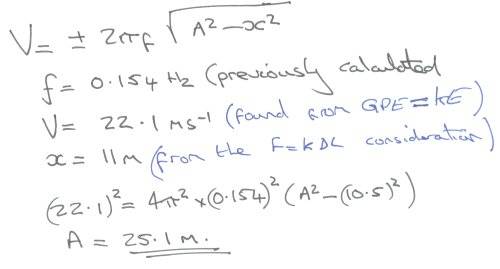 V = ± 2πf √(A² - x²)
f = 0.154 Hz (previously calculated
V = 22.1 ms⁻¹ (found from GPE = KE)
x = 11m (from the F = kΔL consideration)
(22.1)² = 4π² × (0.154)² (A² - (10.5)²)
A = 25.1 m.